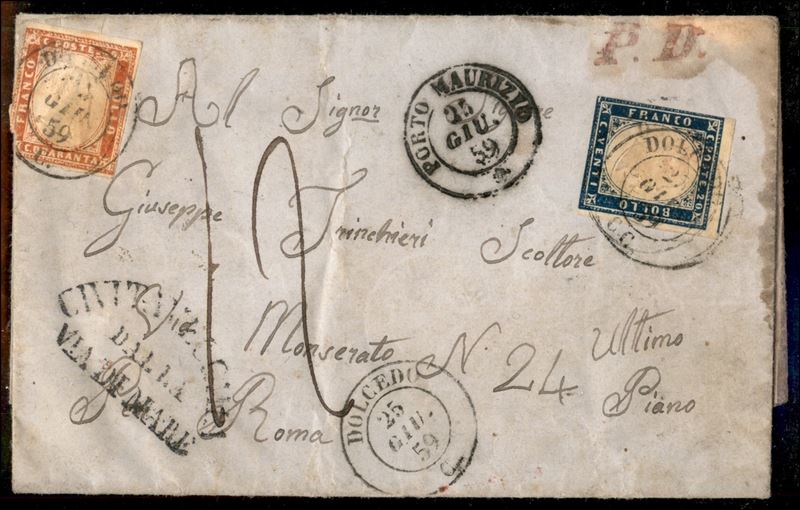 P. D.
C. POSTE 40
FRANCO
BOLLO
C. QUARANTA
GIU.
59
PORTO MAURIZIO
25
GIU.
59
FRANCO
C. POSTE 20
C. VENTI
BOLLO
DOLCEDO
Al Signor
Giuseppe Trinchieri Scoltore
Via Monserato N. 24 Ultimo
Roma Piano
12
CIVITAVECCHIA
DALLA
VIA DI MARE
DOLCEDO
25
GIU.
59